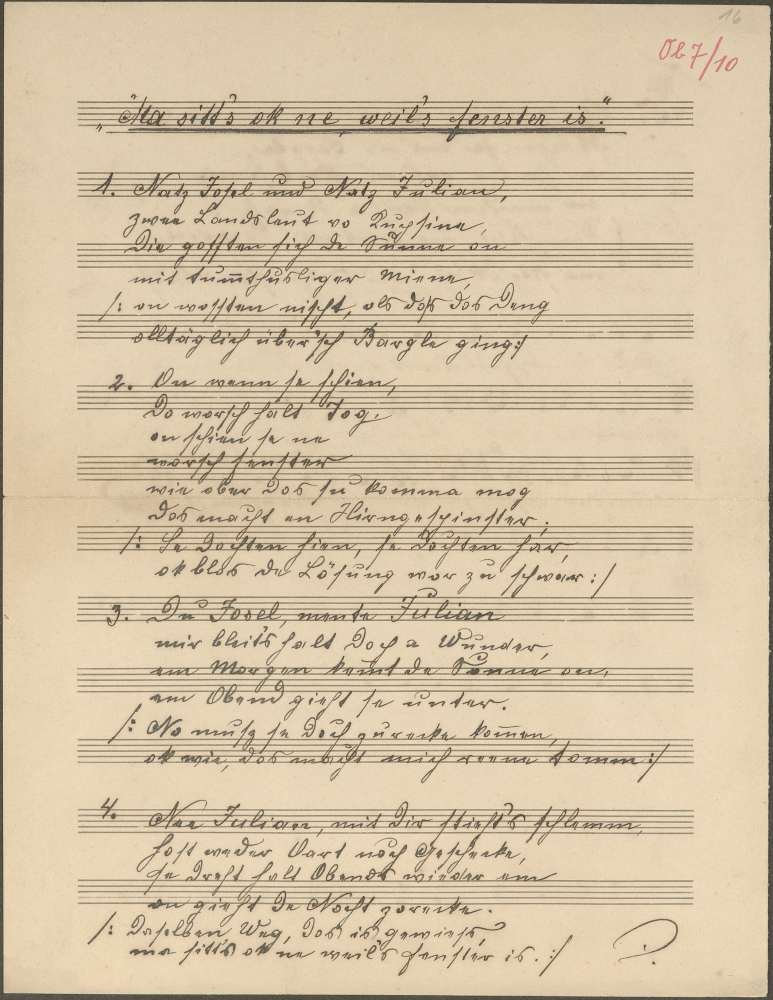 16
Ob 7/10
„Ma sitt's ok ne, weil's fenster is."
1. Natz Josel und Natz Julian,
zwee Landsleut vo
Die gofften sich de Sunne on
mit tummthusliger Miene,
/: on wossten nischt, als doß dos Deng
olltäglich über'sch Bargle ging :/
2. On wenn se schien,
Do worsch halt Tog,
on schien se ne
worsch fenster
wie ober dos su komma mog
dos macht en Hirngespinster,
/: Se dochten hien, se dochten har,
ok blos de Lösung wor zu schwar :/
3. Du Josel, mente Julian
mir bleit's halt doch a Wunder,
em Morgen kemt de Sonne on,
em Obend gieht se unter.
/: No muß se doch zurecke kommen,
ok wie, dos macht mich reene tomm :/
4. Nee Julian, mit dir stieht's schlemm,
host weder Oart noch Geschecke,
se dreht halt Obends wieder em
on gieht de Nocht zorecke.
/: Daselben Weg, dos is gewieß,
ma sitt's ok ne weil's fenster is. :/